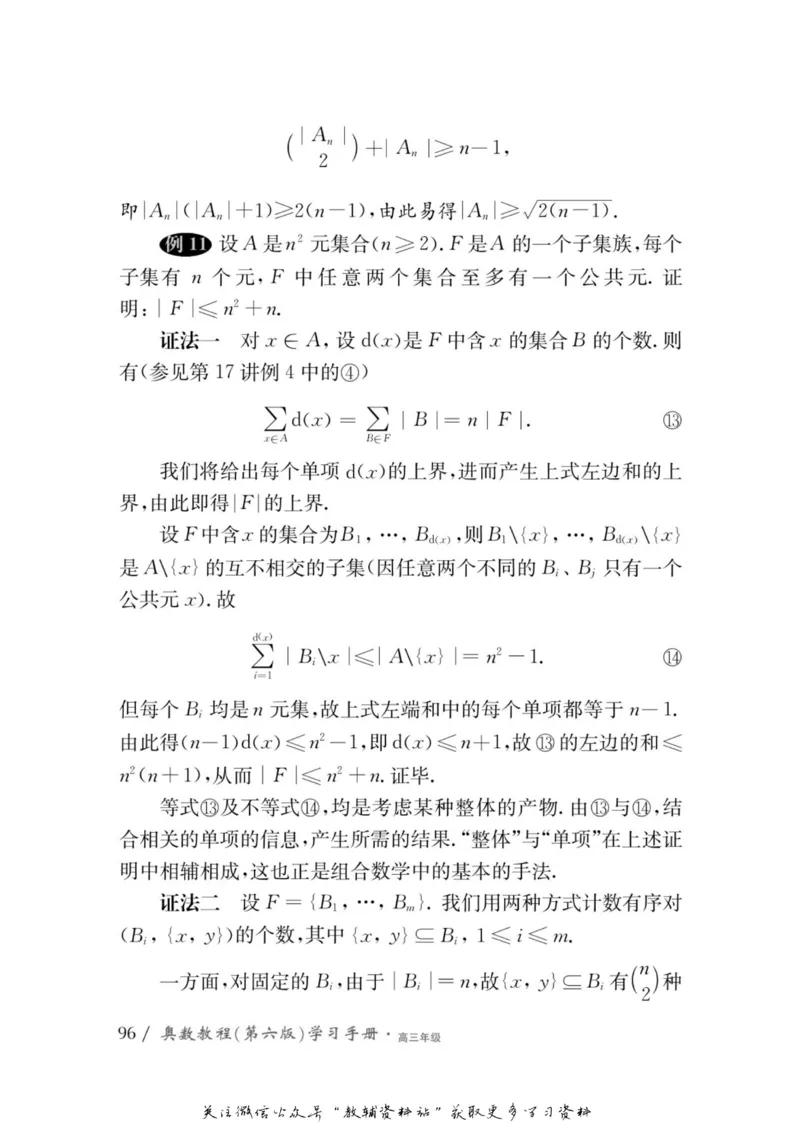 (|Aₙ| 2)+|Aₙ|≥n−1,
即|Aₙ|(|Aₙ|+1)≥2(n−1),由此易得|Aₙ|≥√2(n−1).
例11 设A是n²元集合(n≥2).F是A的一个子集族,每个
子集有 n 个元, F 中任意两个集合至多有一个公共元. 证
明:|F|≤n²+n.
证法一 对x∈A,设d(x)是F中含x的集合B的个数.则
有(参见第17讲例4中的④)
∑d(x) = ∑|B|=n|F|. ⑬
x∈A B∈F
我们将给出每个单项d(x)的上界,进而产生上式左边和的上
界,由此即得|F|的上界.
设F中含x的集合为B₁,…,B_d(x),则B₁\{x},…,B_d(x)\{x}
是A\{x}的互不相交的子集(因任意两个不同的Bᵢ、Bⱼ只有一个
公共元x).故
d(x)
∑|Bᵢ\x|≤|A\{x}|=n²−1. ⑭
i=1
但每个Bᵢ均是n元集,故上式左端和中的每个单项都等于n−1.
由此得(n−1)d(x)≤n²−1,即d(x)≤n+1,故⑬的左边的和≤
n²(n+1),从而|F|≤n²+n.证毕.
等式⑬及不等式⑭,均是考虑某种整体的产物.由⑬与⑭,结
合相关的单项的信息,产生所需的结果.“整体”与“单项”在上述证
明中相辅相成,这也正是组合数学中的基本的手法.
证法二 设F={B₁,…,Bₘ}.我们用两种方式计数有序对
(Bᵢ,{x,y})的个数,其中{x,y}⊆Bᵢ,1≤i≤m.
一方面,对固定的Bᵢ,由于|Bᵢ|=n,故{x,y}⊆Bᵢ有(n 2)种
96 / 奥数教程(第六版)学习手册·高三年级
关注微信公众号“教辅资料站”获取更多学习资料